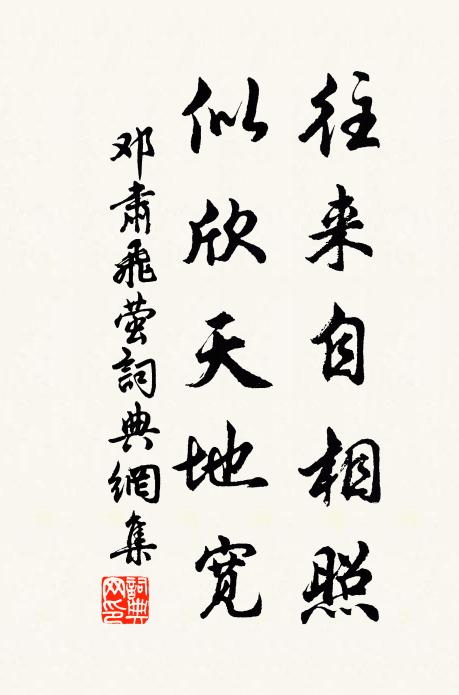 往来自相照
似欣天地宽
邓肃飛萤詞典網集
詞典